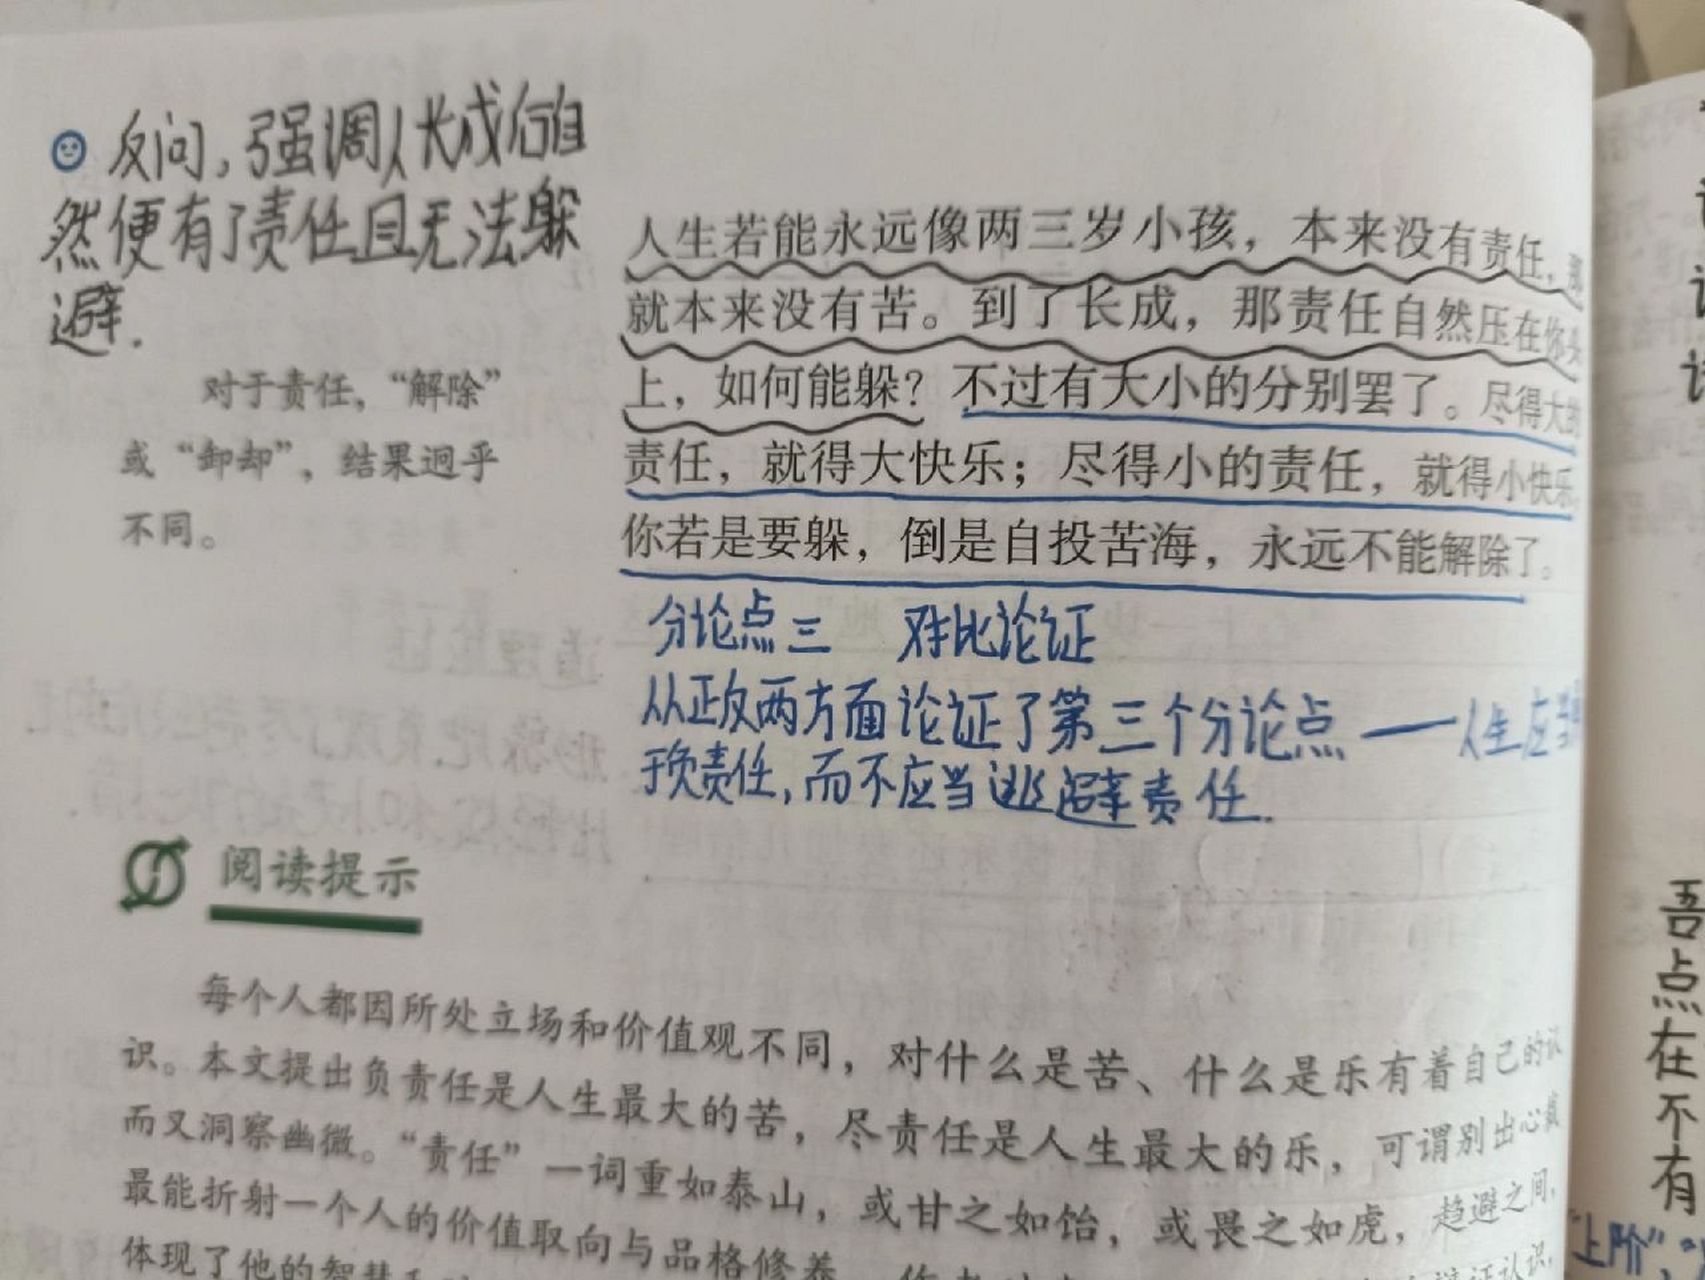 反问,强调人长成后自
然便有了责任且无法躲
避.
对于责任，“解除”
或“卸却”，结果迥乎
不同。
人生若能永远像两三岁小孩，本来没有责任，那
就本来没有苦。到了长成，那责任自然压在你头
上，如何能躲？不过有大小的分别罢了。尽得大的
责任，就得大快乐；尽得小的责任，就得小快乐
你若是要躲，倒是自投苦海，永远不能解除了。
分论点三 对比论证
从正反两方面论证了第三个分论点——人生应当
负责任,而不应当逃避责任.
阅读提示
每个人都因所处立场和价值观不同，对什么是苦、什么是乐有着自己的认
识。本文提出负责任是人生最大的苦，尽责任是人生最大的乐，可谓别出心裁
而又洞察幽微。“责任”一词重如泰山，或甘之如饴，或畏之如虎，趋避之间，
最能折射一个人的价值取向与品格修养
体现了他的智慧
吾
点
在
不
有
“上阶”